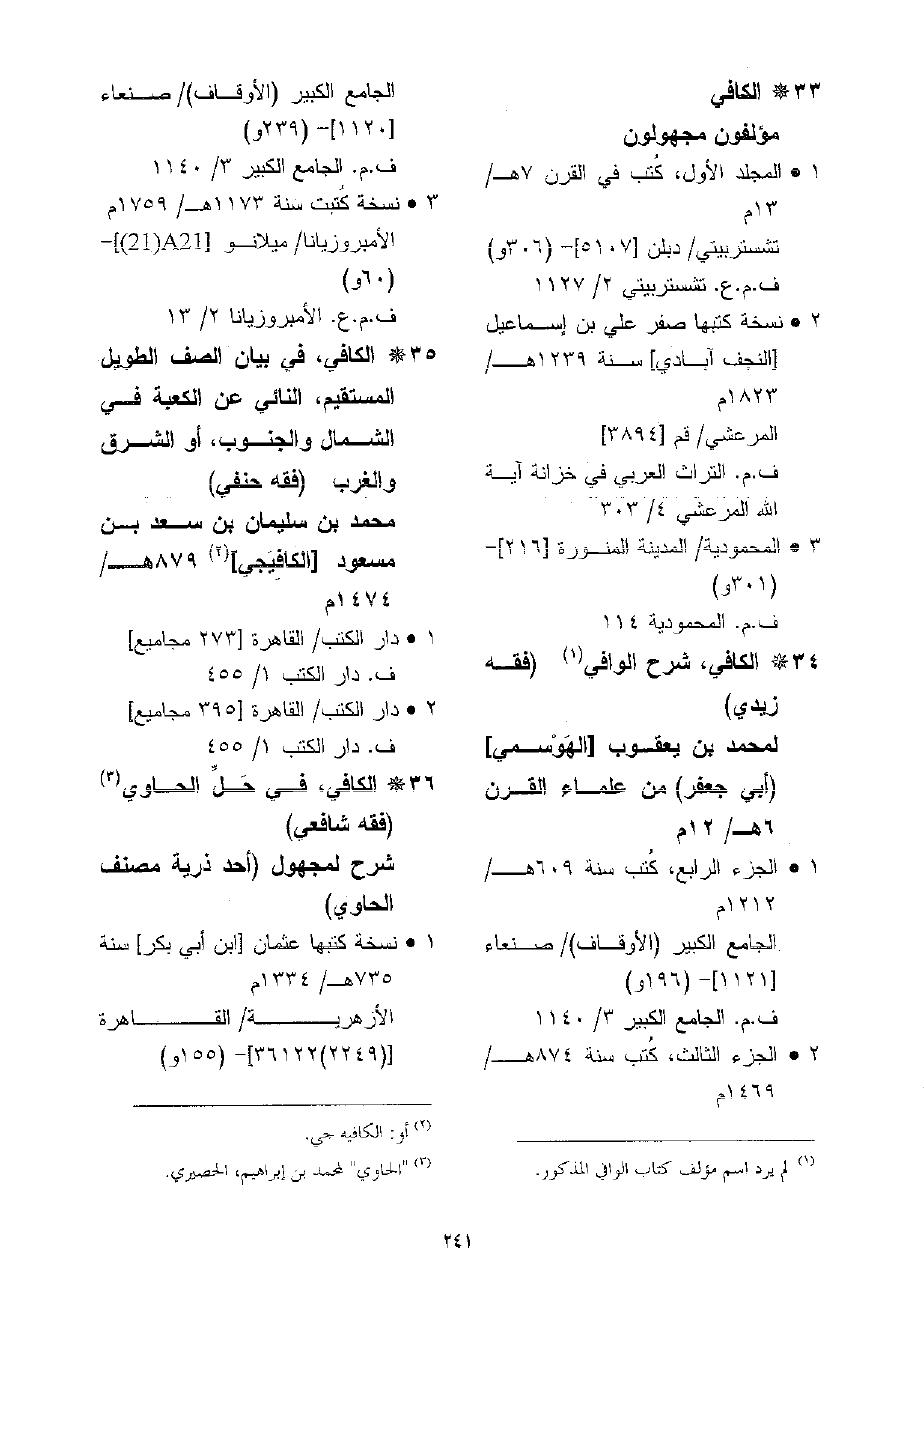 ٣٣ * الكافي
مؤلفون مجهولون
١ • المجلد الأول، كُتب في القرن ٧هـ/
١٣م
تشستربيتي/ دبلن [٥١٠٧]- (٣٠٦و)
ف.م.ع. تشستربيتي ٢/ ١١٢٧
٢ • نسخة كتبها صفر علي بن إسماعيل
[النجف آبادي] سنة ١٢٣٩هـ/
١٨٢٣م
المرعشي/ قم [٣٨٩٤]
ف.م. التراث العربي في خزانة آية
الله المرعشي ٤/ ٣٠٣
٣ • المحمودية/ المدينة المنورة [٢١٦]-
(٣٠١و)
ف.م. المحمودية ١١٤
٣٤ * الكافي، شرح الوافي(١) (فقه
زيدي)
لمحمد بن يعقوب [الهَوْسمي]
(أبي جعفر) من علماء القرن
٦هـ/ ١٢م
١ • الجزء الرابع، كُتب سنة ٦٠٩هـ/
١٢١٢م
الجامع الكبير (الأوقاف)/ صنعاء
[١١٢١]- (١٩٦و)
ف.م. الجامع الكبير ٣/ ١١٤٠
٢ • الجزء الثالث، كُتب سنة ٨٧٤هـ/
١٤٦٩م
(١) لم يرد اسم مؤلف كتاب الوافي المذكور.
الجامع الكبير (الأوقاف)/ صنعاء
[١١٢٠]- (٢٣٩و)
ف.م. الجامع الكبير ٣/ ١١٤٠
٣ • نسخة كُتبت سنة ١١٧٣هـ/ ١٧٥٩م
الأمبروزيانا/ ميلانو [A21(21)]-
(٦٠و)
ف.م.ع. الأمبروزيانا ٢/ ١٣
٣٥ * الكافي، في بيان الصف الطويل
المستقيم، النائي عن الكعبة في
الشمال والجنوب، أو الشرق
والغرب (فقه حنفي)
محمد بن سليمان بن سعد بن
مسعود [الكافيَجي](٢) ٨٧٩هـ/
١٤٧٤م
١ • دار الكتب/ القاهرة [٢٧٣ مجاميع]
ف. دار الكتب ١/ ٤٥٥
٢ • دار الكتب/ القاهرة [٣٩٥ مجاميع]
ف. دار الكتب ١/ ٤٥٥
٣٦ * الكافي، في حَلِّ الحاوي(٣)
(فقه شافعي)
شرح لمجهول (أحد ذرية مصنف
الحاوي)
١ • نسخة كتبها عثمان [ابن أبي بكر] سنة
٧٣٥هـ/ ١٣٣٤م
الأزهرية/ القاهرة
[(٢٢٤٩)٣٦١٢٢]- (١٥٥و)
(٢) أو: الكافيه جي.
(٣) "الحاوي" لمحمد بن إبراهيم، الحصيري.
٢٤١